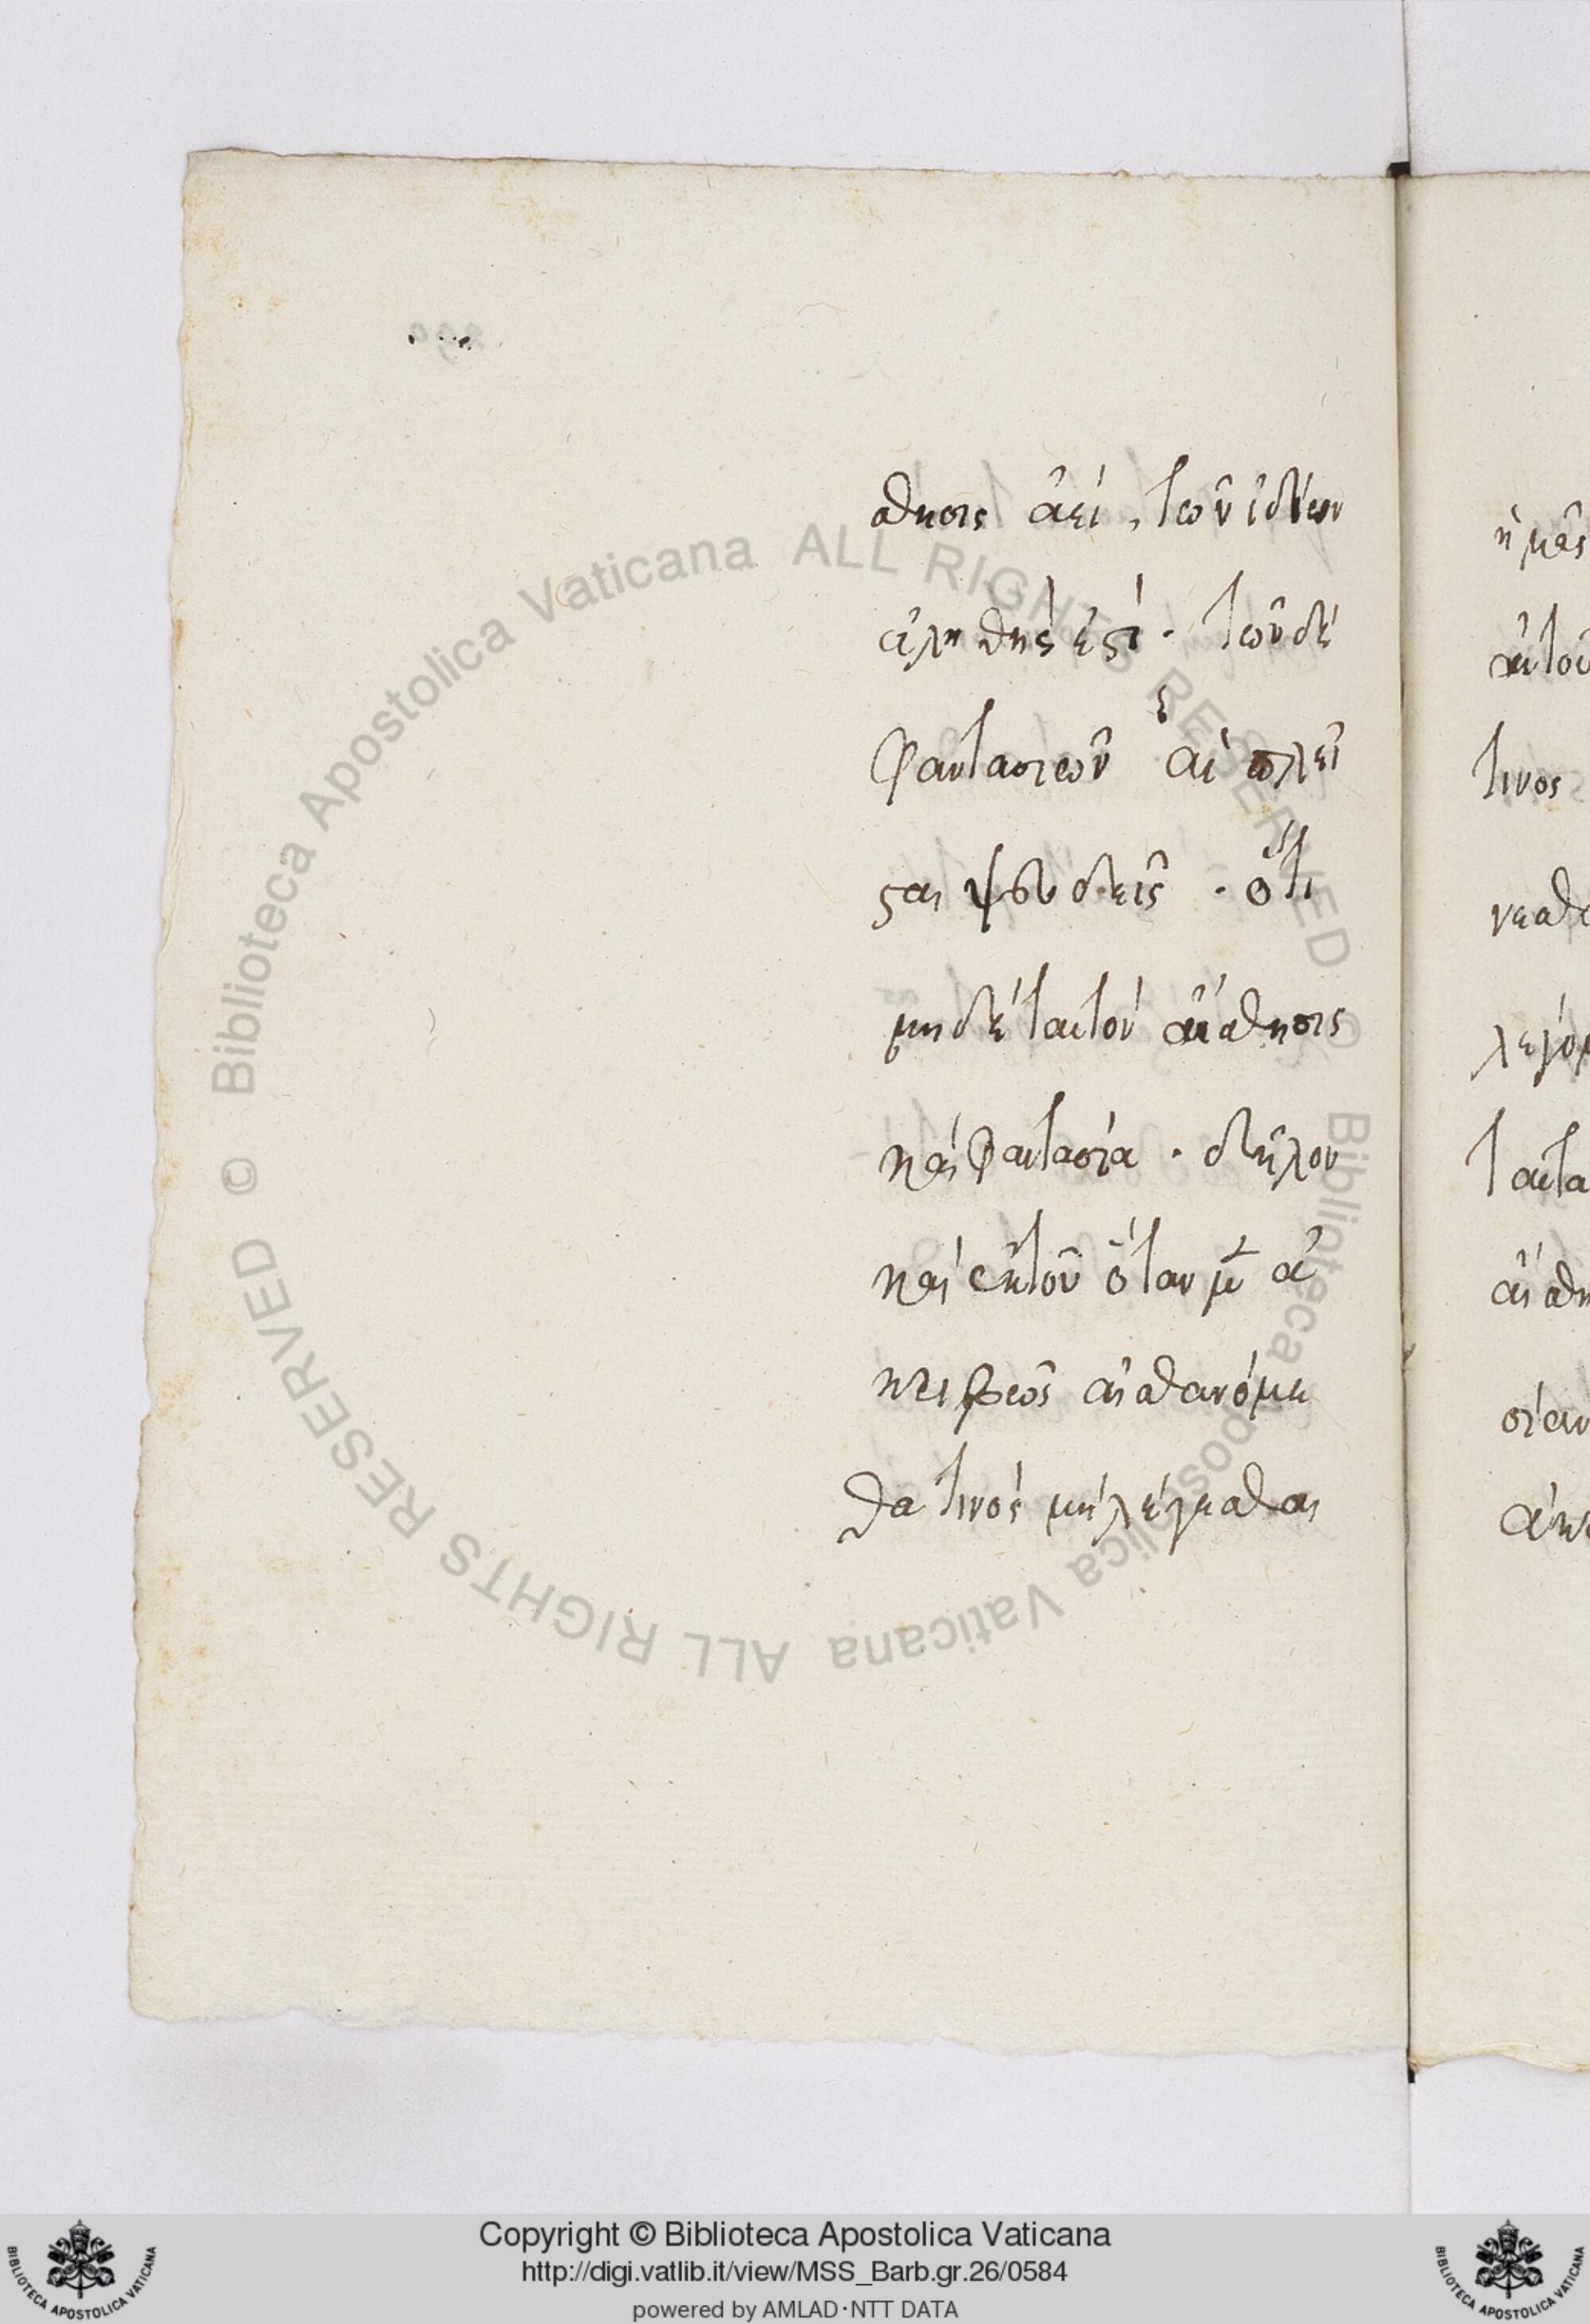 σθησις ἀεὶ, τῶν ἰδίων
ἀληθής ἐστι · τῶν δὲ
φαντασιῶν ε αἱ πλεῖ
σται ψευδεῖς · ὅτι
μηδὲ ταυτὸν αἴσθησις
καὶ φαντασία · δῆλον
καὶ ἐκ τοῦ ὅταν μὲν ἀ
κριβῶς αἰσθανόμε
θα τινὸς μὴ λέγεσθαι
ἡμᾶς
αὐτοῦ
τινος
γεσθ
λεγόμ
ταυτα
αἴσθη
σίαν
ἀκρ
© Biblioteca Apostolica Vaticana ALL RIGHTS RESERVED
© Biblioteca Apostolica Vaticana ALL RIGHTS RESERVED
Copyright © Biblioteca Apostolica Vaticana
http://digi.vatlib.it/view/MSS_Barb.gr.26/0584
powered by AMLAD·NTT DATA
BIBLIOTECA APOSTOLICA VATICANA
BIBLIOTECA APOSTOLICA VATICANA